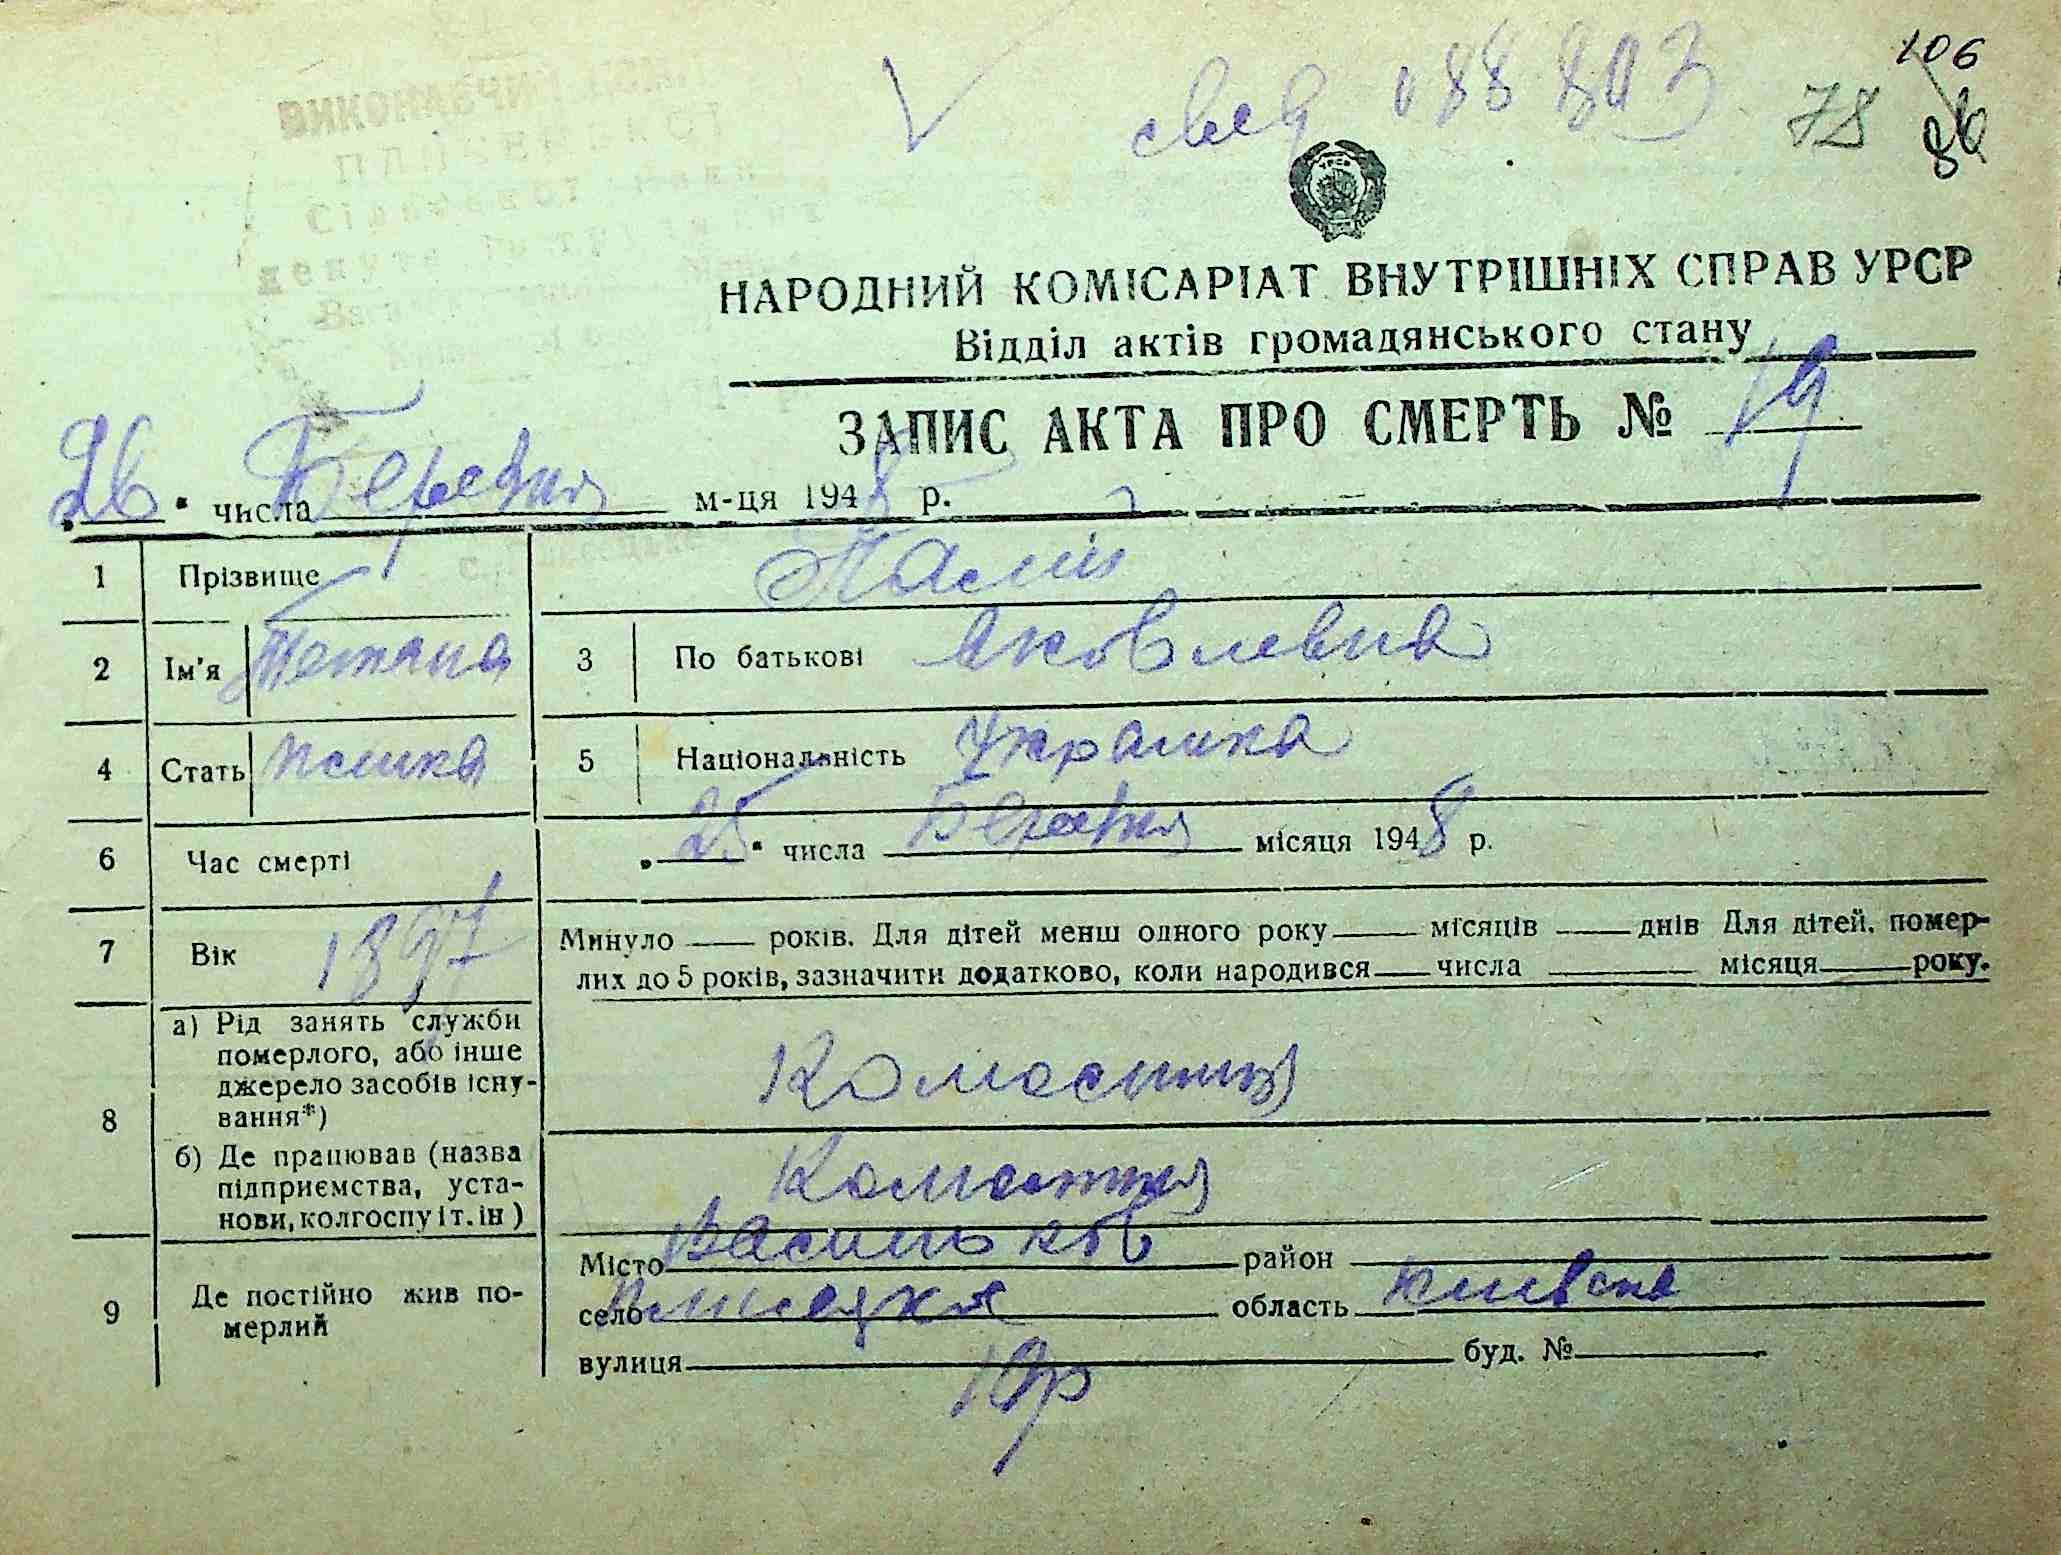 106
78
86
свед 088803
НАРОДНИЙ КОМІСАРІАТ ВНУТРІШНІХ СПРАВ УРСР
Відділ актів громадянського стану
ЗАПИС АКТА ПРО СМЕРТЬ № 19
„26“ числа Березня м-ця 1948 р.
1 Прізвище
2 Ім'я Тетяна 3 По батькові Яковлевна
4 Стать 5 Національність Украинка
6 Час смерті „25“ числа Березня місяця 1948 р.
7 Вік 1897 Минуло — років. Для дітей менш одного року — місяців — днів Для дітей, помер-
лих до 5 років, зазначити додатково, коли народився — числа — місяця — року.
8 а) Рід занять служби
померлого, або інше
джерело засобів існу-
вання*)
б) Де працював (назва
підприємства, уста-
нови, колгоспу і т. ін)
9 Де постійно жив по-
мерлий
Місто Васильков район
село область Київска
вулиця буд. №